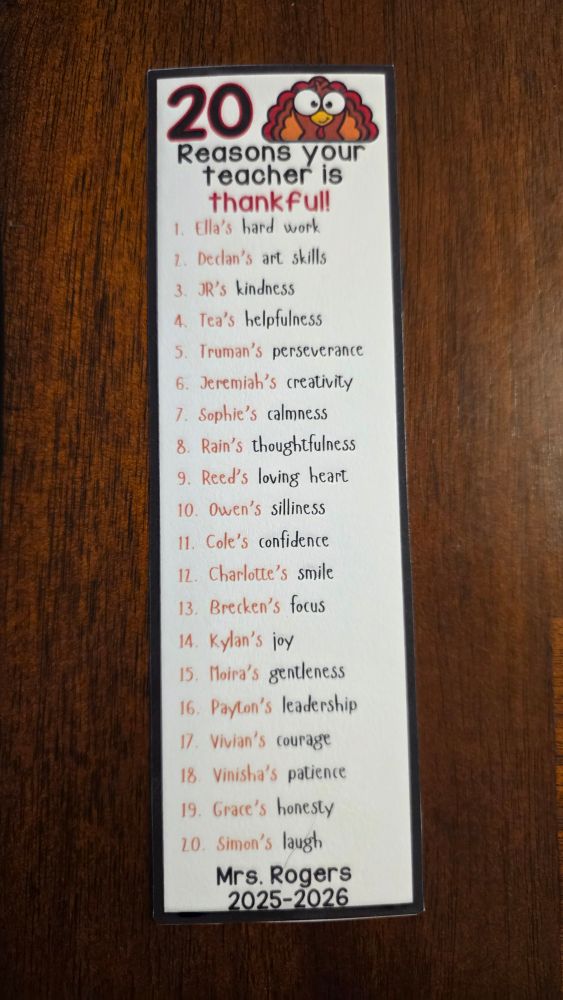 20
Reasons your
teacher is
thankful!
1. Ella's hard work
2. Declan's art skills
3. JR's kindness
4. Tea's helpfulness
5. Truman's perseverance
6. Jeremiah's creativity
7. Sophie's calmness
8. Rain's thoughtfulness
9. Reed's loving heart
10. Owen's silliness
11. Cole's confidence
12. Charlotte's smile
13. Brecken's focus
14. Kylan's joy
15. Moira's gentleness
16. Payton's leadership
17. Vivian's courage
18. Vinisha's patience
19. Grace's honesty
20. Simon's laugh
Mrs. Rogers
2025-2026